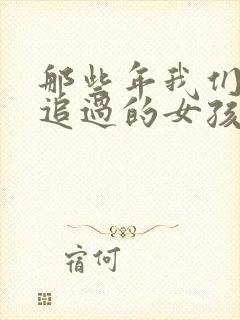 那些年我们
追过的女孩
宿何